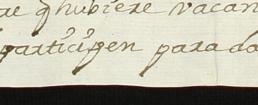 q hubiere vacan
participen para da